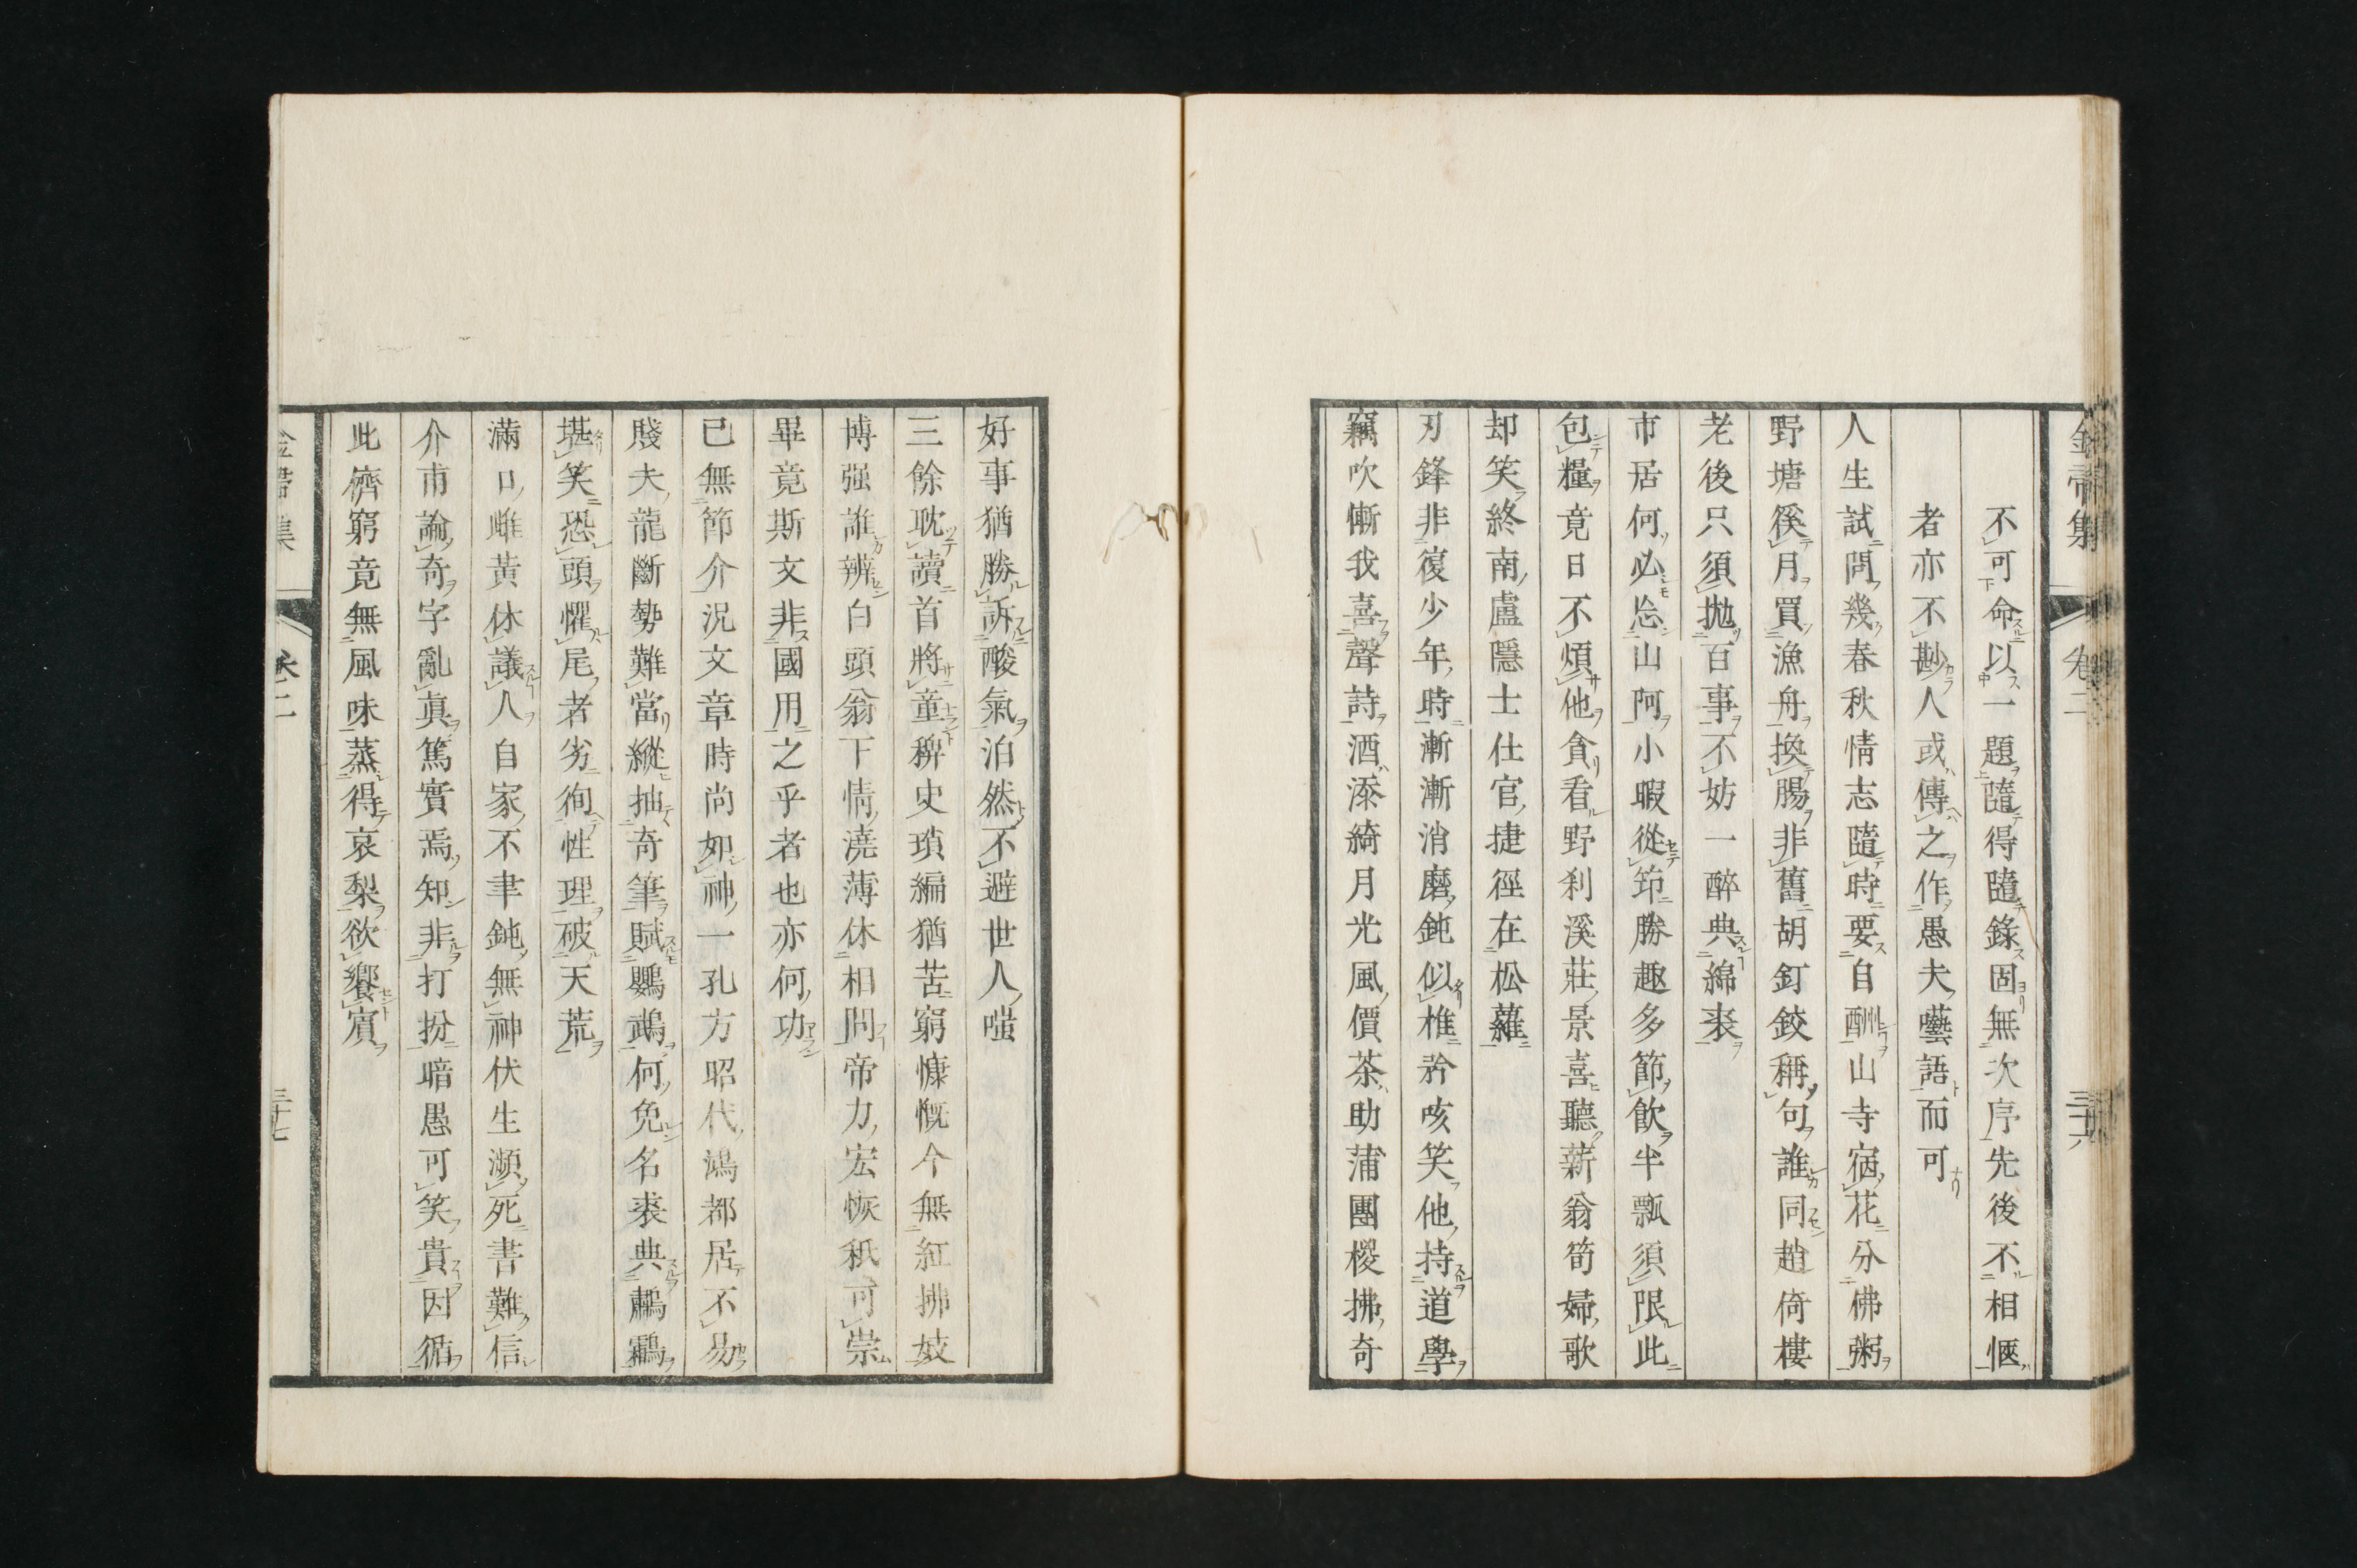 金帚集 卷二 三十六
不可命以一題隨得隨錄固無次序先後不相愜
者亦不尠人或傳之作愚夫囈語而可
人生試問幾春秋情志隨時要自酬山寺宿花分佛粥
野塘徯月買漁舟換腸非舊胡釘鉸稱句誰同趙倚樓
老後只須拋百事不妨一醉典綿裘
市居何必忘山阿小暇從筇勝趣多節飮半瓢須限此
包糧竟日不煩他貪看野利溪莊景喜聽薪翁筍婦歌
却笑終南盧隱士仕官捷徑在松蘿
刃鋒非復少年時漸漸消磨鈍似椎矜咳笑他持道學
竊吹慚我喜聲詩酒添綺月光風價茶助蒲團椶拂奇
好事猶勝訴酸氣泊然不避世人嗤
三餘耽讀首將童稗史瑣編猶苦窮慷慨今無紅拂妓
博强誰辨白頭翁下情澆薄休相問帝力宏恢秖可崇
畢竟斯文非國用之乎者也亦何功
已無節介況文章時尚如神一孔方昭代鴻都居不易
賤夫龍斷勢難當縱抽奇筆賦鸚鵡何免名裘典鷫鸘
堪笑恐頭懼尾者劣徇性理破天荒
滿口雌黃休議人自家不聿鈍無神伏生瀕死書難信
介甫論奇字亂眞篤實焉知非打扮暗愚可笑貴因循
此儕窮竟無風味蒸得哀梨欲饗賓
金帚集 卷二 三十七